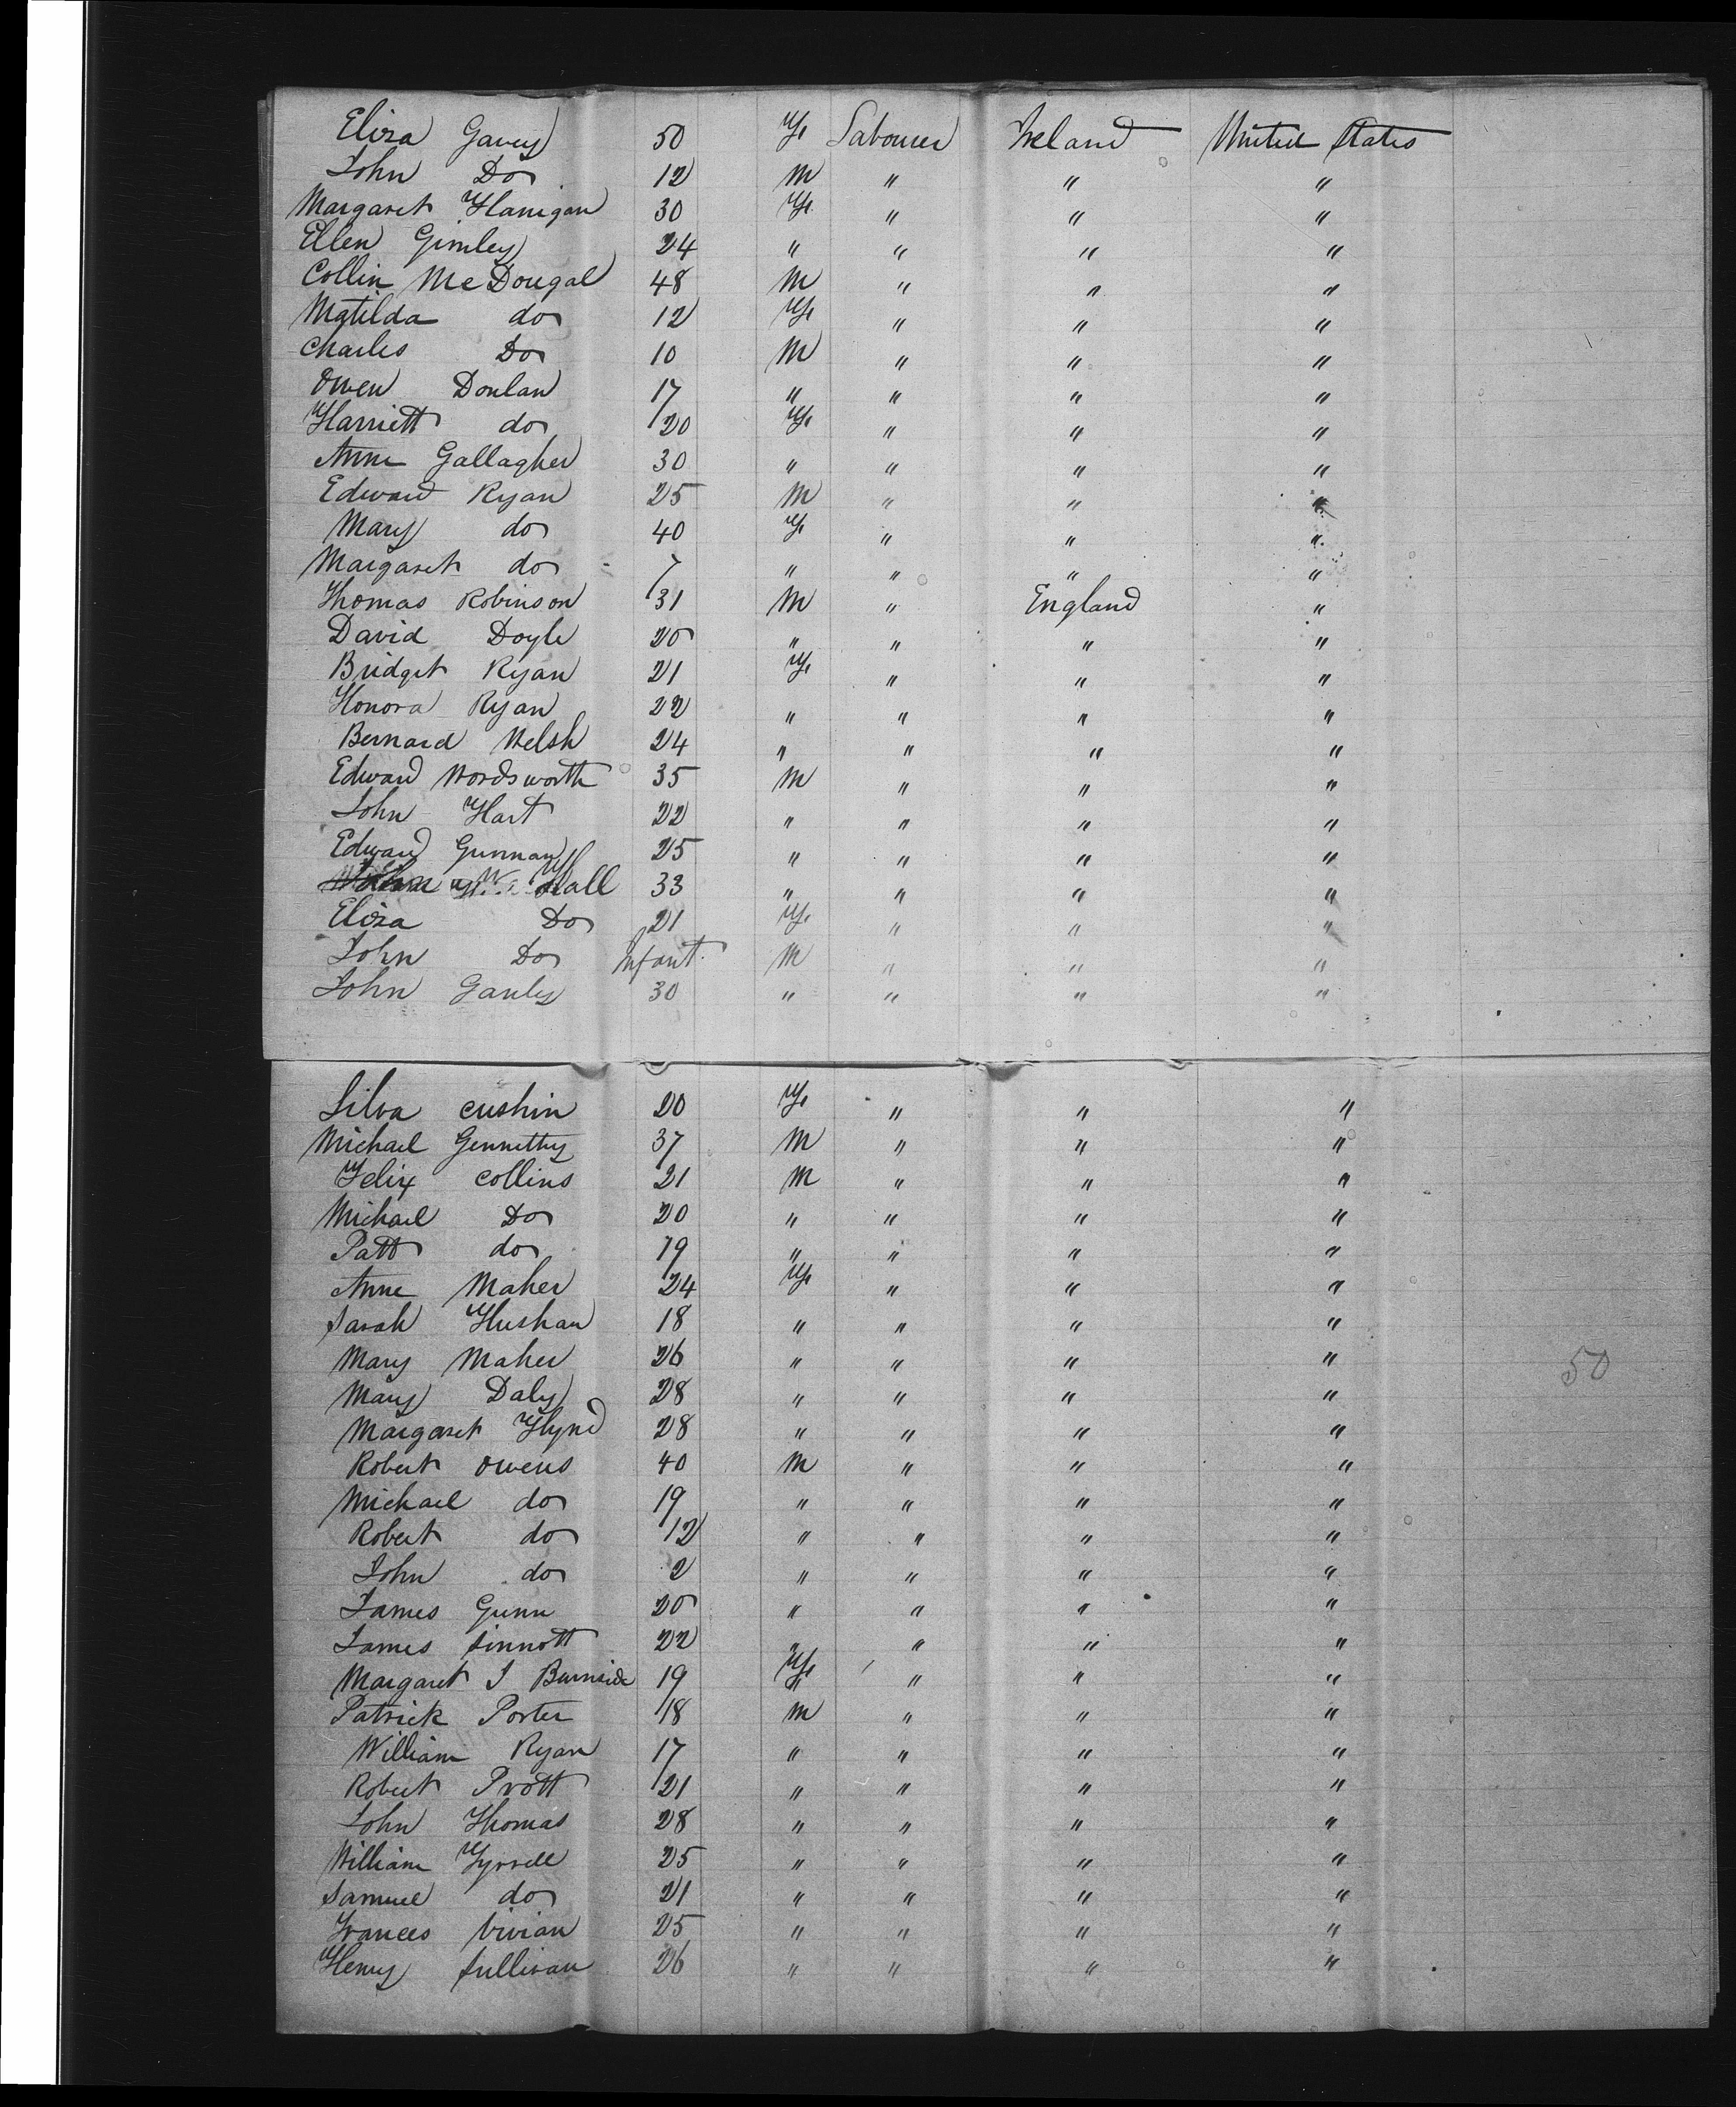 Eliza Gavey 50 F Labourer Ireland United States
John Do 12 M " " "
Margaret Flanigan 30 F " " "
Ellen Gimley 24 " " " "
Collin McDougal 48 M " " "
Matilda do 12 F " " "
Charles Do 10 M " " "
Owen Donlan 17 " " " "
Harriett do 20 F " " "
Anne Gallagher 30 " " " "
Edward Ryan 25 M " " "
Mary do 40 F " " "
Margaret do 7 " " " "
Thomas Robinson 31 M " England "
David Doyle 20 " " " "
Bridget Ryan 21 F " " "
Honora Ryan 22 " " " "
Bernard Welsh 24 " " " "
Edward Wordsworth 35 M " " "
John Hart 22 " " " "
Edward Gunnan 25 " " " "
Hall 33 " " " "
Eliza Do 21 F " " "
John Do Infant M " " "
John Ganley 30 " " " "
Silva Cushin 20 F " " "
Michael Gennethy 37 M " " "
Felix Collins 21 M " " "
Michael Do 20 " " " "
Patt do 19 " " " "
Anne Maher 24 F " " "
Sarah Hushan 18 " " " "
Mary Maher 26 " " " "
Mary Daly 28 " " " "
Margaret Flynd 28 " " " "
Robert Owens 40 M " " "
Michael do 19 " " " "
Robert do 12 " " " "
John do 2 " " " "
James Gunn 20 " " " "
James Sinnott 22 " " " "
Margaret J Burnside 19 F " " "
Patrick Porter 18 M " " "
William Ryan 17 " " " "
Robert Prott 21 " " " "
John Thomas 28 " " " "
William Tyrrell 25 " " " "
Samuel do 21 " " " "
Frances Vivian 25 " " " "
Henry Sullivan 26 " " " "
50